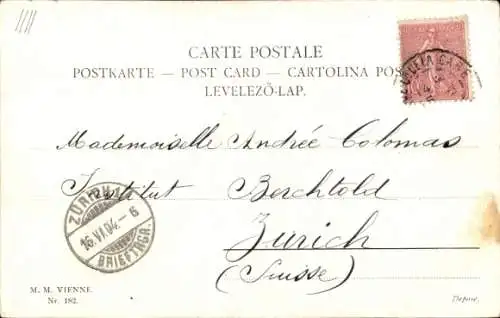 CARTE POSTALE
POSTKARTE — POST CARD — CARTOLINA POS
LEVELEZŐ-LAP.
Mademoiselle Andrée Colomas
Institut Berchtold
Zürich
(Suisse)
ZÜRICH 1
16.VI.04.-6
BRIEFTRGR.
M. M. VIENNE.
Nr. 182.